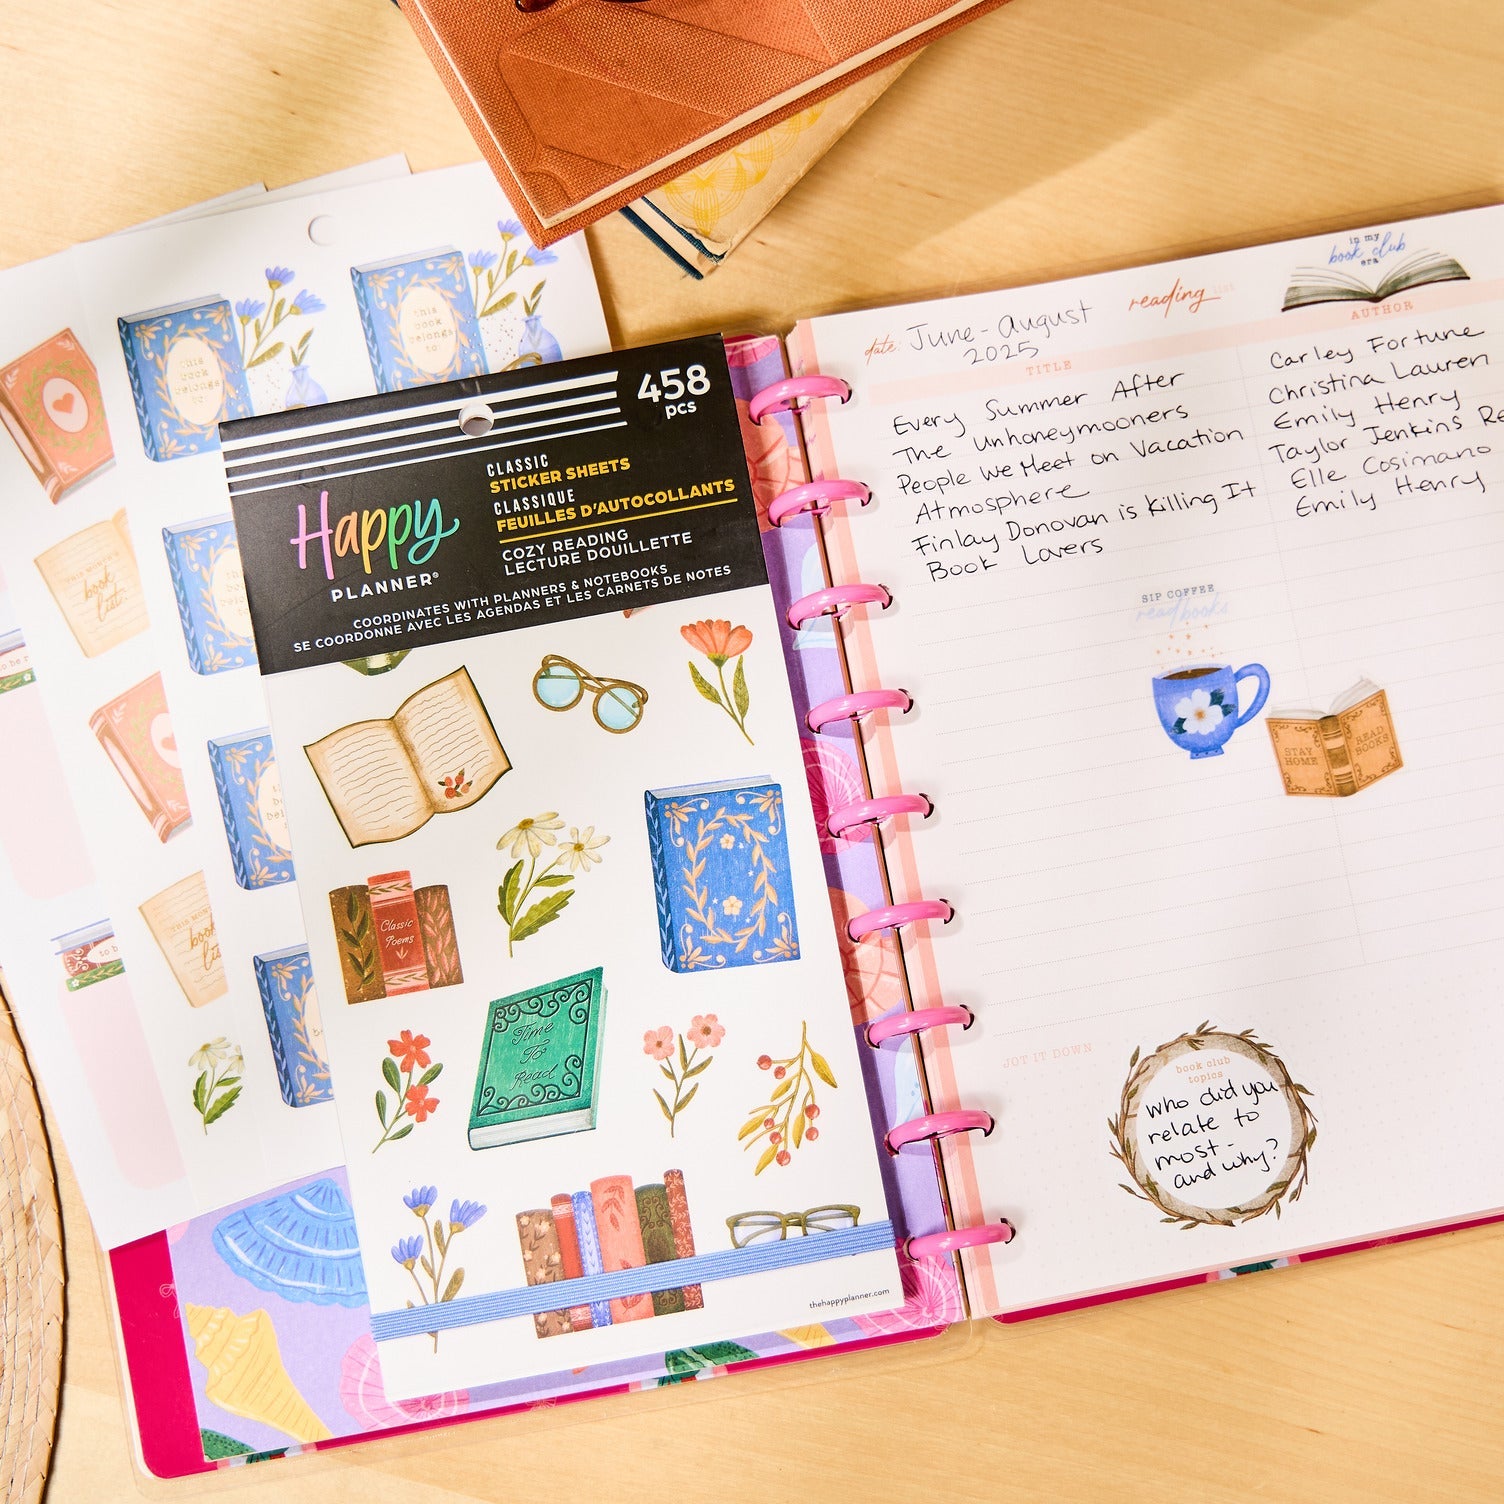 this
book
belongs
to:
this
book
belongs
to:
THIS MONTH'S
book
list:
THIS MONTH'S
book
458
pcs
CLASSIC
STICKER SHEETS
CLASSIQUE
FEUILLES D'AUTOCOLLANTS
Happy
PLANNER®
COZY READING
LECTURE DOUILLETTE
COORDINATES WITH PLANNERS & NOTEBOOKS
SE COORDONNE AVEC LES AGENDAS ET LES CARNETS DE NOTES
Classic
Poems
Time
To
Read
thehappyplanner.com
in my
book club
era
reading list
date: June - August
2025
TITLE
AUTHOR
Every Summer After
Carley Fortune
The Unhoneymooners
Christina Lauren
People We Meet on Vacation
Emily Henry
Atmosphere
Taylor Jenkins Re
Finlay Donovan is Killing It
Elle Cosimano
Book Lovers
Emily Henry
SIP COFFEE
read books
STAY
HOME
READ
BOOKS
JOT IT DOWN
book club
topics
who did you
relate to
most -
and why?